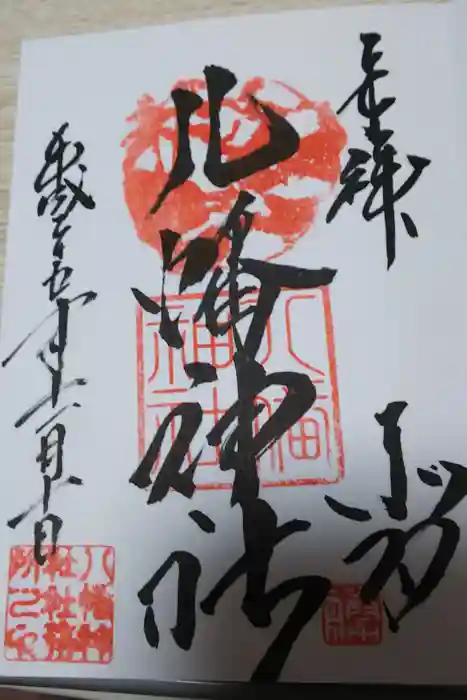 奉拝
八幡神社
平成二十五年十一月十日
八幡神社
八幡神社社務所之印